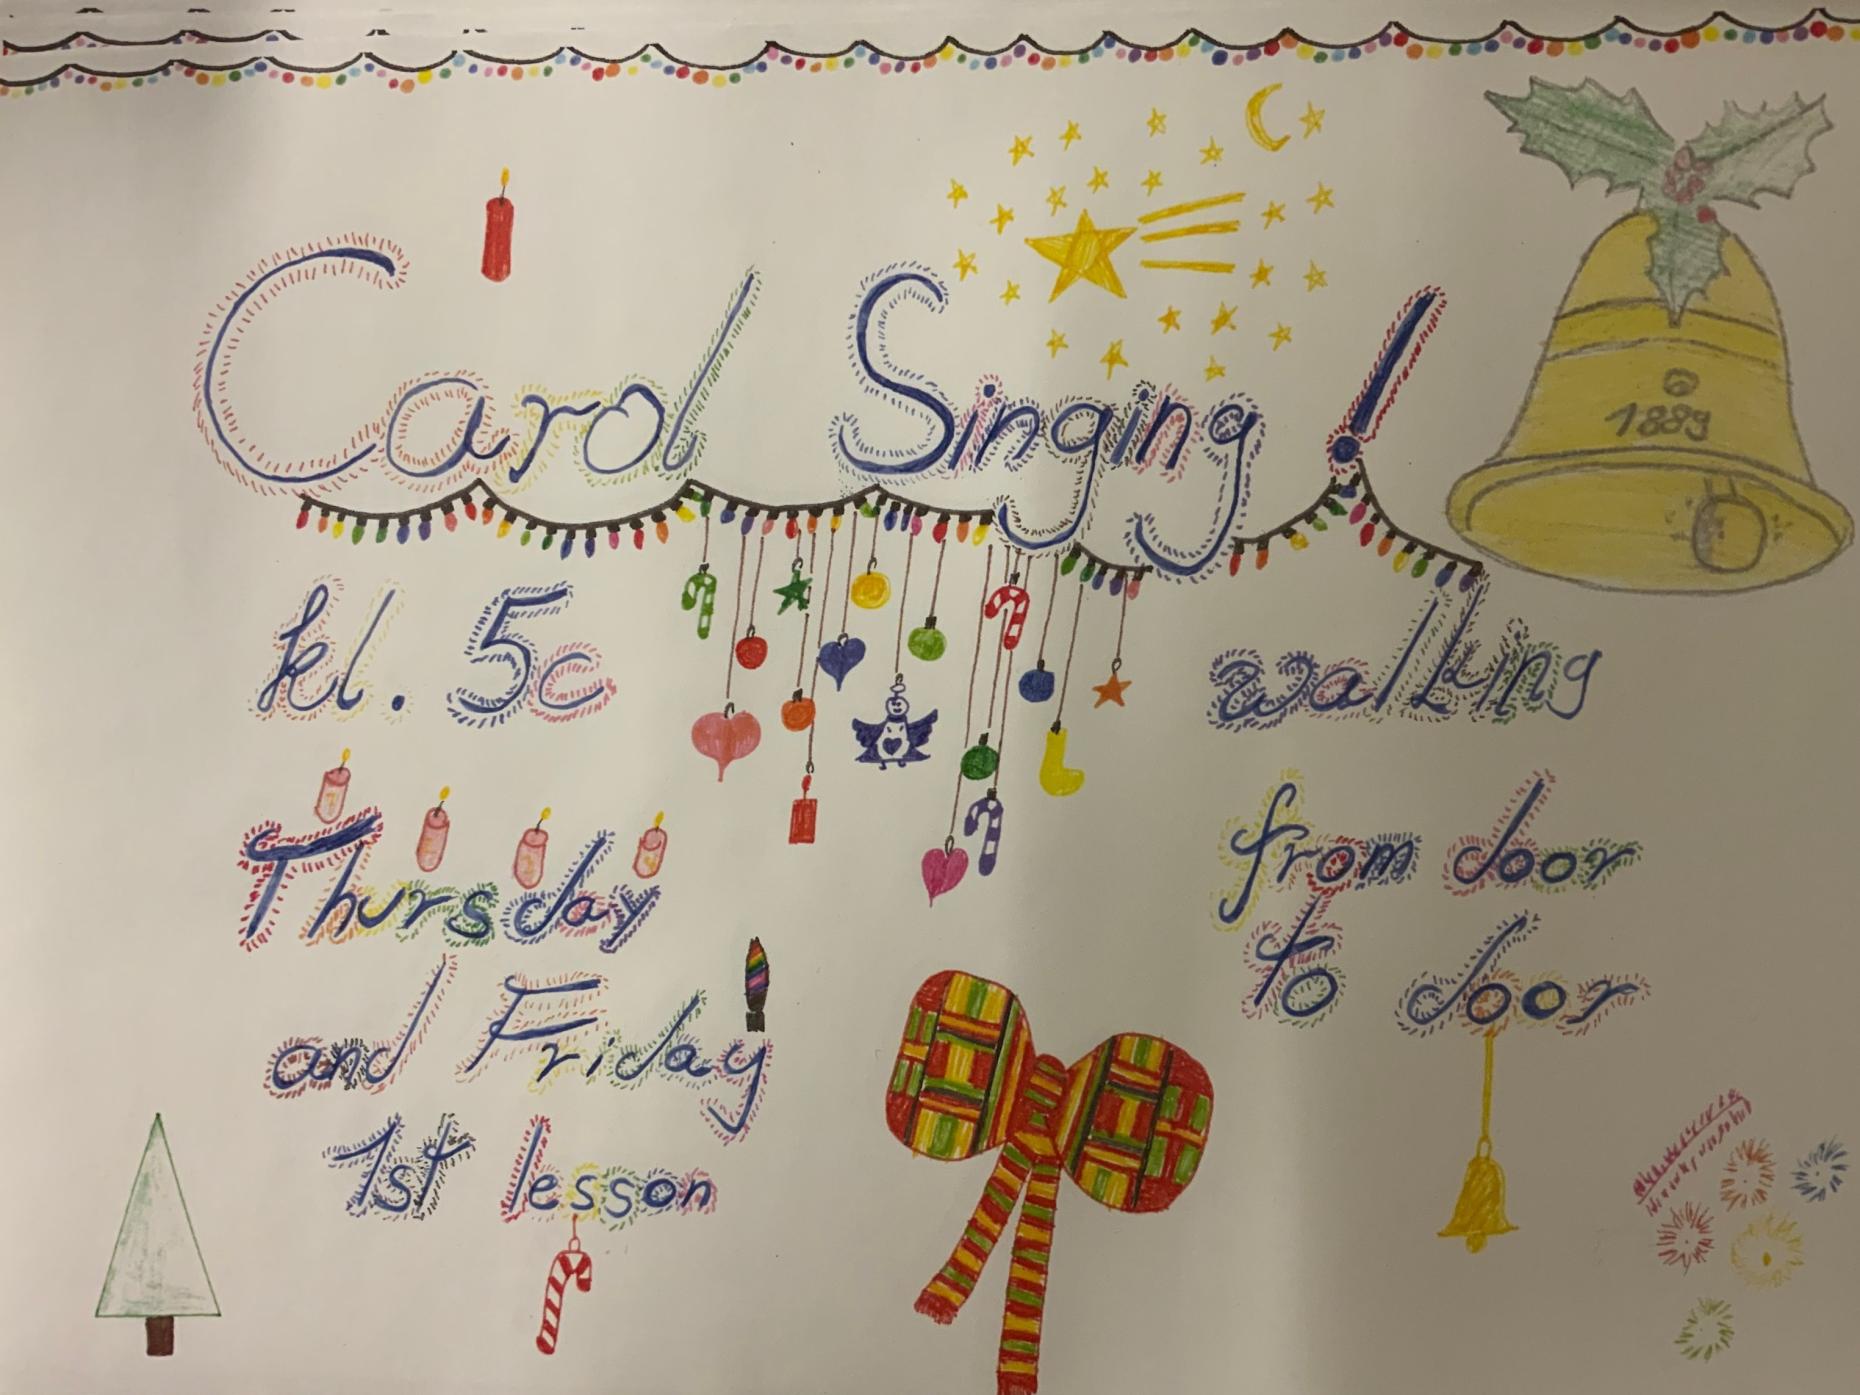 Carol Singing!
1889
kl. 5c
Thursday
and Friday
1st lesson
walking
from door
to door